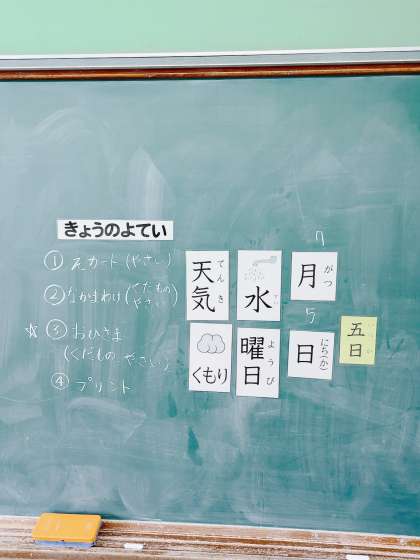 きょうのよてい
① えカード (やさい)
② なかまわけ (くだもの やさい)
☆③ おひさま
(くだもの やさい)
④ プリント
天気 てんき
くもり
水 すい
曜日 ようび
7
月 がつ
5
日 にち(か)
五日